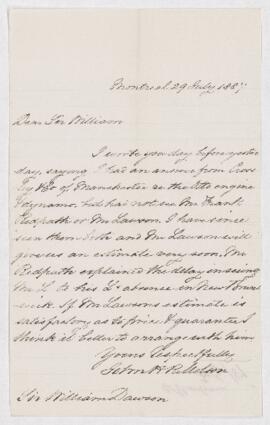 Montreal 29 July 1887
Dear Sir William
I wrote you day before yester
day, saying I had an answer from Cross
ley Bros of Manchester re the little engine
& dynamo, but had not seen Mr Frank
Redpath or Mr Lawson. I have since
seen them both and Mr Lawson will
give us an estimate very soon. Mr
Redpath explained the delay on seeing
Mr L. to his L's absence in New Bruns
wick. If Mr Lawsons estimate is
satisfactory as to price & guarantee I
think it better to arrange with him
Yours respectfully
Sir William Dawson